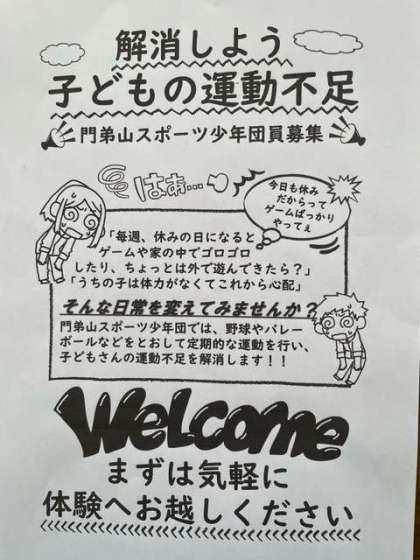 解消しよう
子どもの運動不足
門弟山スポーツ少年団員募集
はぁ…
今日も休み
だからって
ゲームばっかり
やってぇ
「毎週、休みの日になると
ゲームや家の中でゴロゴロ
したり、ちょっとは外で遊んできたら？」
「うちの子は体力がなくてこれから心配」
そんな日常を変えてみませんか？
門弟山スポーツ少年団では、野球やバレー
ボールなどをとおして定期的な運動を行い、
子どもさんの運動不足を解消します！！
Welcome
まずは気軽に
体験へお越しください